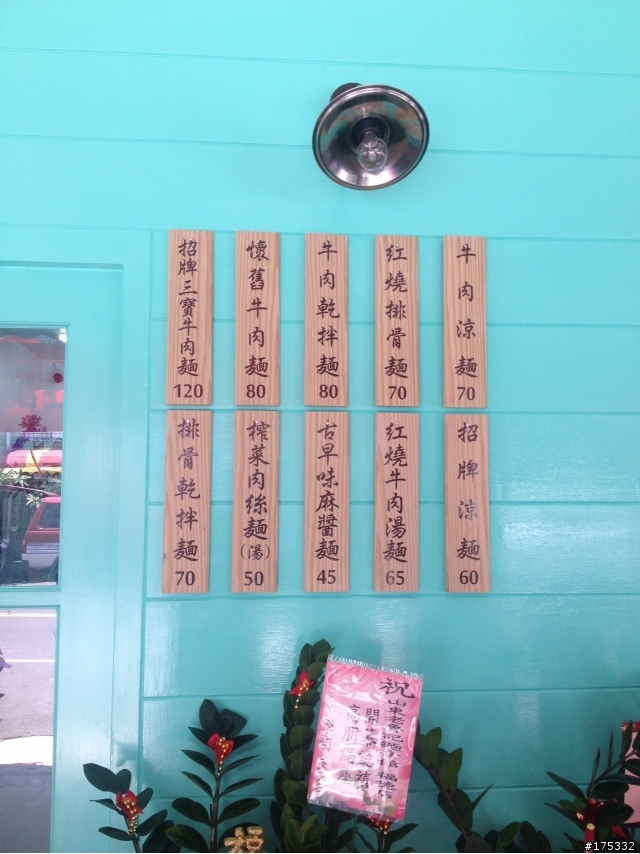 招牌三寶牛肉麵
120
懷舊牛肉麵
80
牛肉乾拌麵
80
紅燒排骨麵
70
牛肉涼麵
70
排骨乾拌麵
70
榨菜肉絲麵(湯)
50
古早味麻醬麵
45
紅燒牛肉湯麵
65
招牌涼麵
60
祝
山東老
開
高朋滿座
#175332